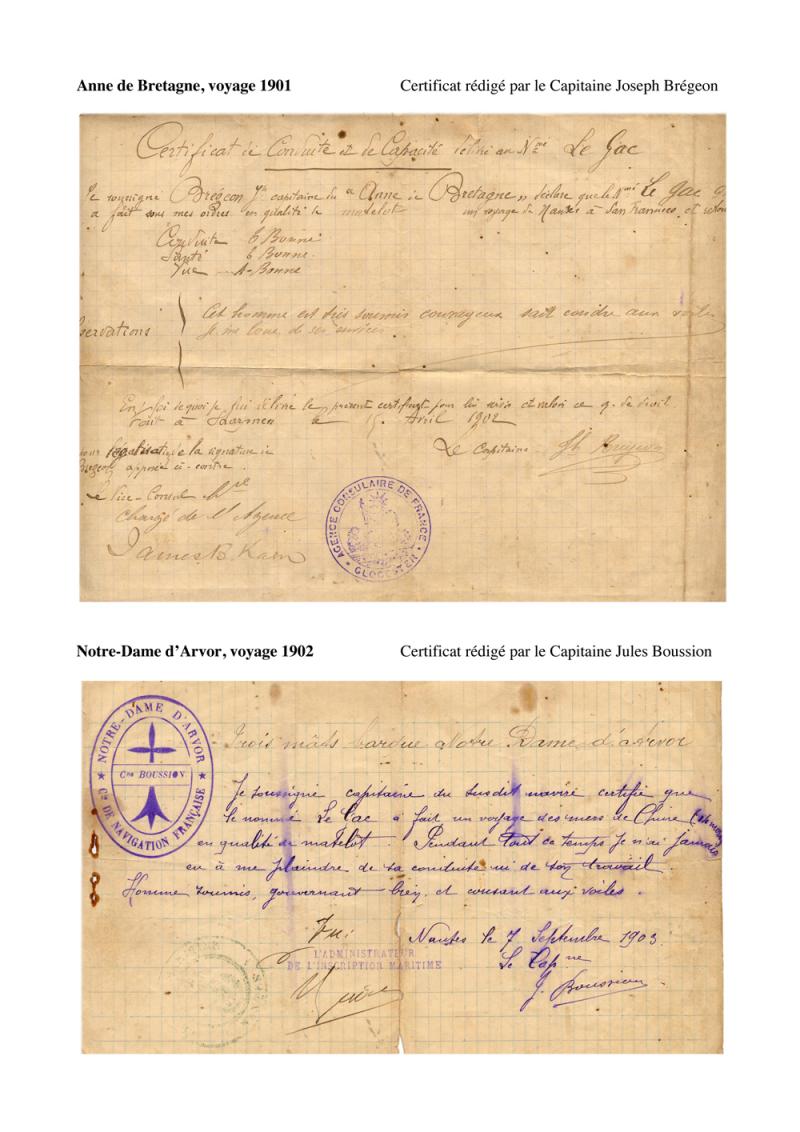 Anne de Bretagne, voyage 1901
Certificat rédigé par le Capitaine Joseph Brégeon
Certificat de Conduite et de Capacité délivré au Nmé Le Gac
Je soussigné Brégeon Jh capitaine du "Anne de Bretagne" déclare que le Nmé Le Gac
a fait sous mes ordres en qualité de matelot un voyage de Nantes à San Francisco, et
Conduite t Bonne
Santé t Bonne
Vue A-Bonne
Cet homme est très soumis courageux sait coudre aux voiles
servations
je me loue de ses services.
En foi de quoi je lui délivre le présent certificat pour lui servir et valoir ce q. de droit
Fait à le 15 Avril 1902
Le Capitaine Jh Brégeon
légalisation de la signature de
apposée ci-contre.
Le Vice-Consul
chargé de l'Agence
James B.
AGENCE CONSULAIRE DE FRANCE
GLOCESTER
Notre-Dame d'Arvor, voyage 1902
Certificat rédigé par le Capitaine Jules Boussion
NOTRE-DAME D'ARVOR
Cne BOUSSION
Cie DE NAVIGATION FRANÇAISE
Trois mâts barque Notre Dame d'Arvor
Je soussigné capitaine du susdit navire certifie que
le nommé Le Gac a fait un voyage des mers de Chine
en qualité de matelot. Pendant tout ce temps je n'ai jamais
eu à me plaindre de sa conduite ni de son travail.
Homme soumis, gouvernant bien, et cousant aux voiles.
Vu:
Nantes le 7 Septembre 1903
L'ADMINISTRATEUR
DE L'INSCRIPTION MARITIME
Le Capne
J. Boussion